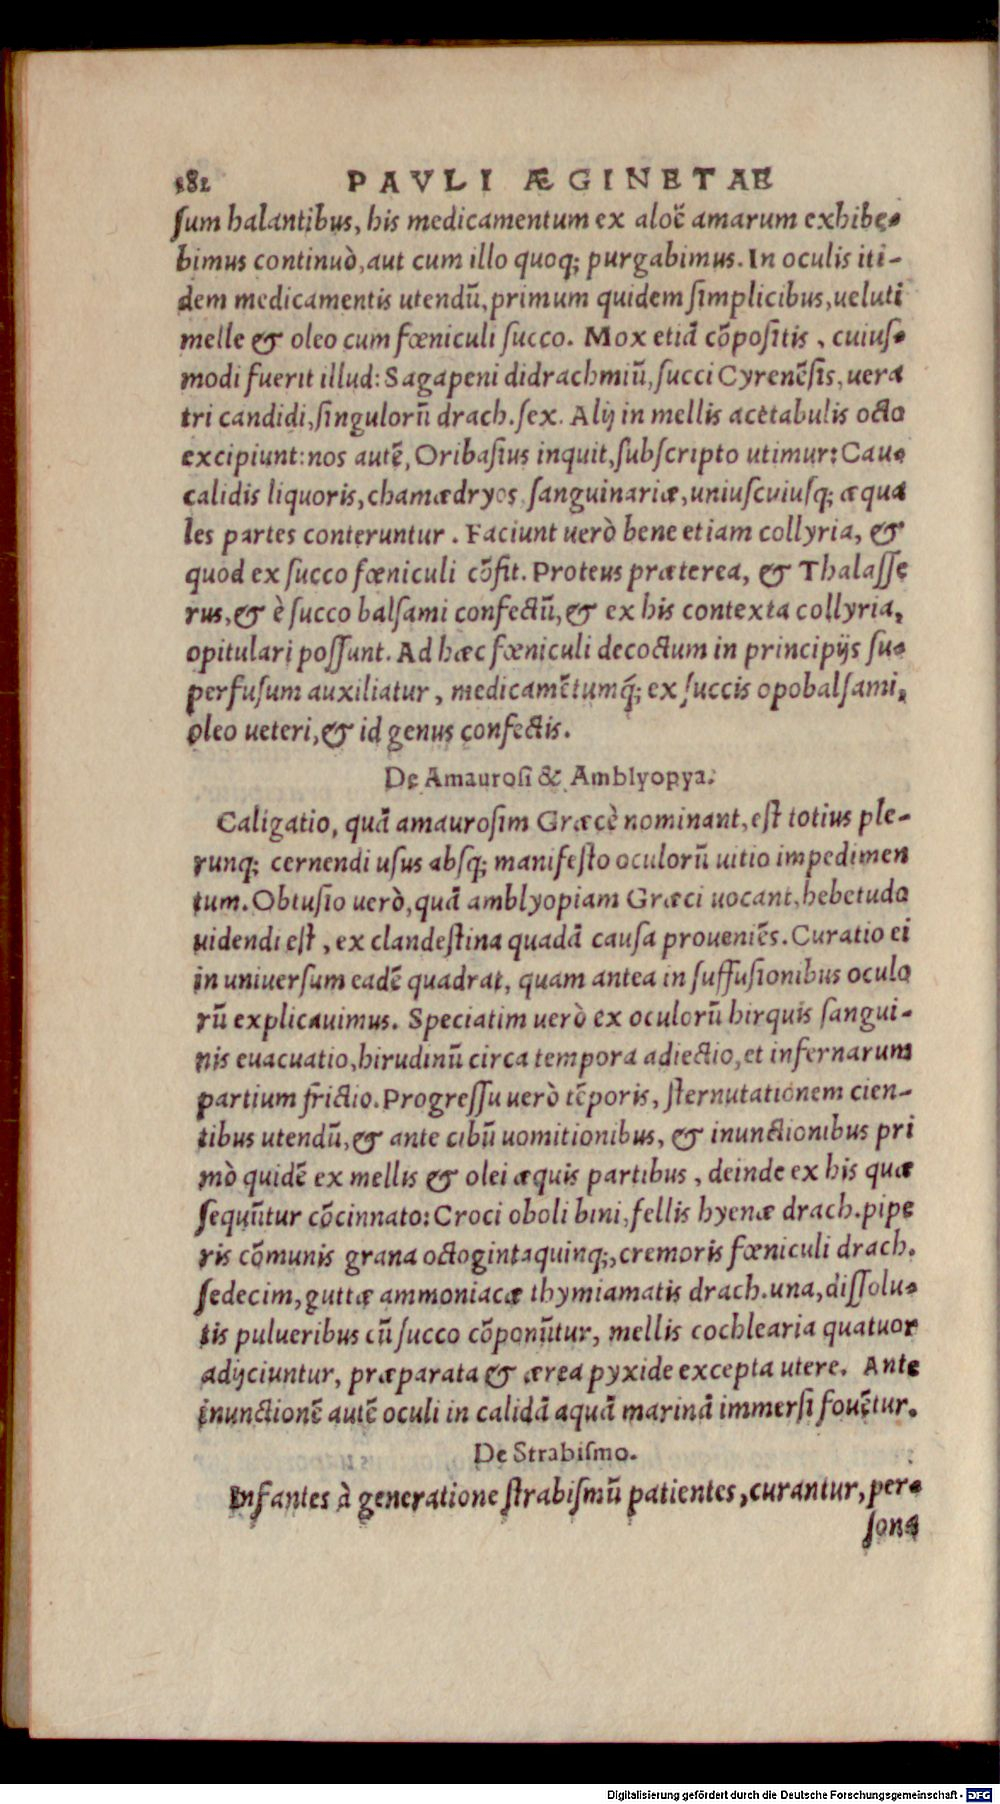 182 PAVLI ÆGINETAE
ſum halantibus, his medicamentum ex aloë amarum exhibe-
bimus continuò, aut cum illo quoq; purgabimus. In oculis iti-
dem medicamentis utendũ, primum quidem ſimplicibus, ueluti
melle & oleo cum fœniculi ſucco. Mox etiã cõpoſitis, cuiuſ-
modi fuerit illud: Sagapeni didrachmiũ, ſucci Cyrenẽſis, uera
tri candidi, ſingulorũ drach. ſex. Alij in mellis acetabulis octo
excipiunt: nos autẽ, Oribaſius inquit, ſubſcripto utimur: Cau-
calidis liquoris, chamædryos, ſanguinariæ, uniuſcuiuſq; æqua
les partes conteruntur. Faciunt uerò bene etiam collyria, &
quod ex ſucco fœniculi cõfit. Proteus præterea, & Thalaſſe
rus, & è ſucco balſami confectũ, & ex his contexta collyria,
opitulari poſſunt. Ad hæc fœniculi decoctum in principijs ſu-
perfuſum auxiliatur, medicamẽtumq́; ex ſuccis opobalſami,
oleo ueteri, & id genus confectis.
De Amauroſi & Amblyopya.
Caligatio, quã amauroſim Græcè nominant, eſt totius ple-
runq; cernendi uſus abſq; manifeſto oculorũ uitio impedimen
tum. Obtuſio uerò, quã amblyopiam Græci uocant, hebetudo
uidendi eſt, ex clandeſtina quadã cauſa proueniẽs. Curatio ei
in uniuerſum eadẽ quadrat, quam antea in ſuffuſionibus oculo
rũ explicauimus. Speciatim uerò ex oculorũ hirquis ſangui-
nis euacuatio, hirudinũ circa tempora adiectio, et infernarum
partium frictio. Progreſſu uerò tẽporis, ſternutationem cien-
tibus utendũ, & ante cibũ uomitionibus, & inunctionibus pri
mò quidẽ ex mellis & olei æquis partibus, deinde ex his quæ
ſequũtur cõcinnato: Croci oboli bini, fellis hyenæ drach. pipe
ris cõmunis grana octogintaquinq;, cremoris fœniculi drach.
ſedecim, guttæ ammoniacæ thymiamatis drach. una, diſſolu-
tis pulueribus cũ ſucco cõponũtur, mellis cochlearia quatuor
adijciuntur, præparata & ærea pyxide excepta utere. Ante
inunctionẽ autẽ oculi in calidã aquã marinã immerſi fouẽtur.
De Strabiſmo.
Infantes à generatione ſtrabiſmũ patientes, curantur, per-
ſona
Digitalisierung gefördert durch die Deutsche Forschungsgemeinschaft - DFG